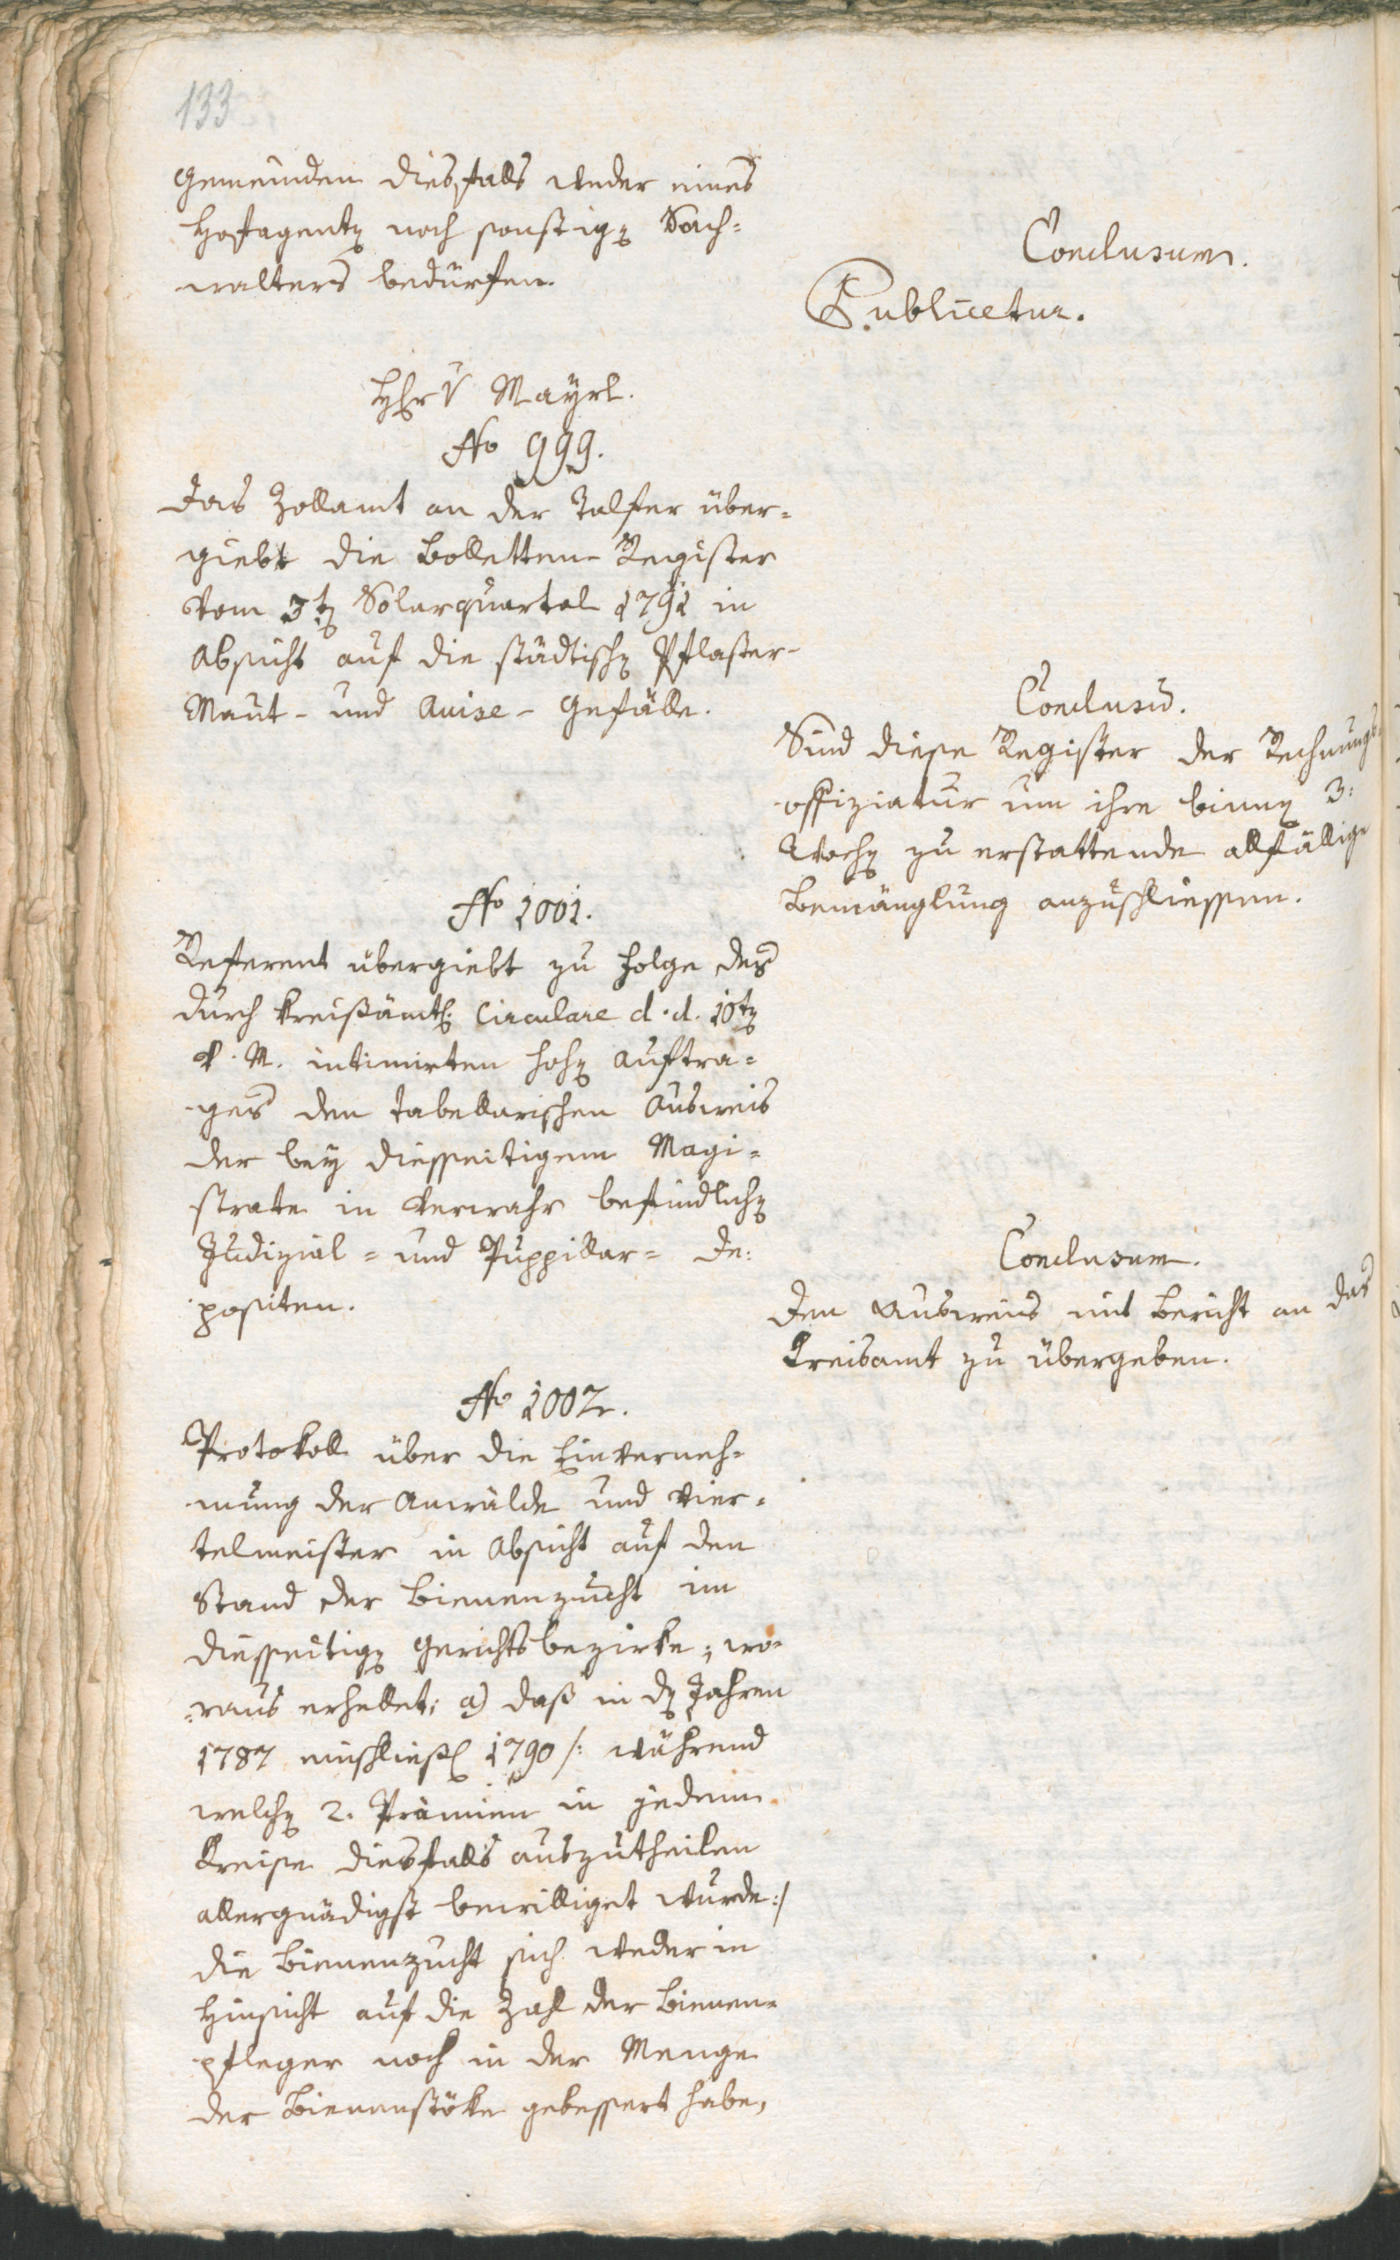 133
Gemeinden diesfalls weder eines
Hofagenten noch sonstigen Sach=
walters bedürfen.
Conclusum.
Publicetur.
Hr v Mayrl.
No 999.
Das Zollamt an der Talfer über=
giebt die Bolletten-Register
vom 3ten Solarquartal 1791 in
Absicht auf die städtischen Pflaster-
Maut- und Avise- Gefälle.
Conclusū.
Sind diese Register der Rechnungs=
offiziatur um ihre binnen 3:
Wochen zu erstattende allfällige
Bemänglung anzuschliessen.
No 1001.
Referent übergiebt zu Folge des
durch kreißämtl: Circulare d. d. 10ten
v. M. intimirten hohen Auftra=
ges den tabellarischen Ausweis
der bey diesseitigem Magi=
strate in Verwahr befindlichen
Judizial= und Puppillar= De=
positen.
Conclusum.
Den Ausweis mit Bericht an das
Kreisamt zu übergeben.
No 1002.
Protokoll über die Einverneh=
mung der Anwälde und Vier=
telmeister in Absicht auf den
Stand der Bienenzucht im
diesseitigen Gerichtsbezirke; wo=
raus erhellet; a) daß in den Jahren
1787 einschließl 1790 /: während
welchen 2. Prämien in jedem
Kreise diesfalls auszutheilen
allergnädigst bewilliget wurde :/
die Bienenzucht sich weder in
Hinsicht auf die Zahl der Bienen=
pfleger noch in der Menge
der Bienenstöke gebessert habe,